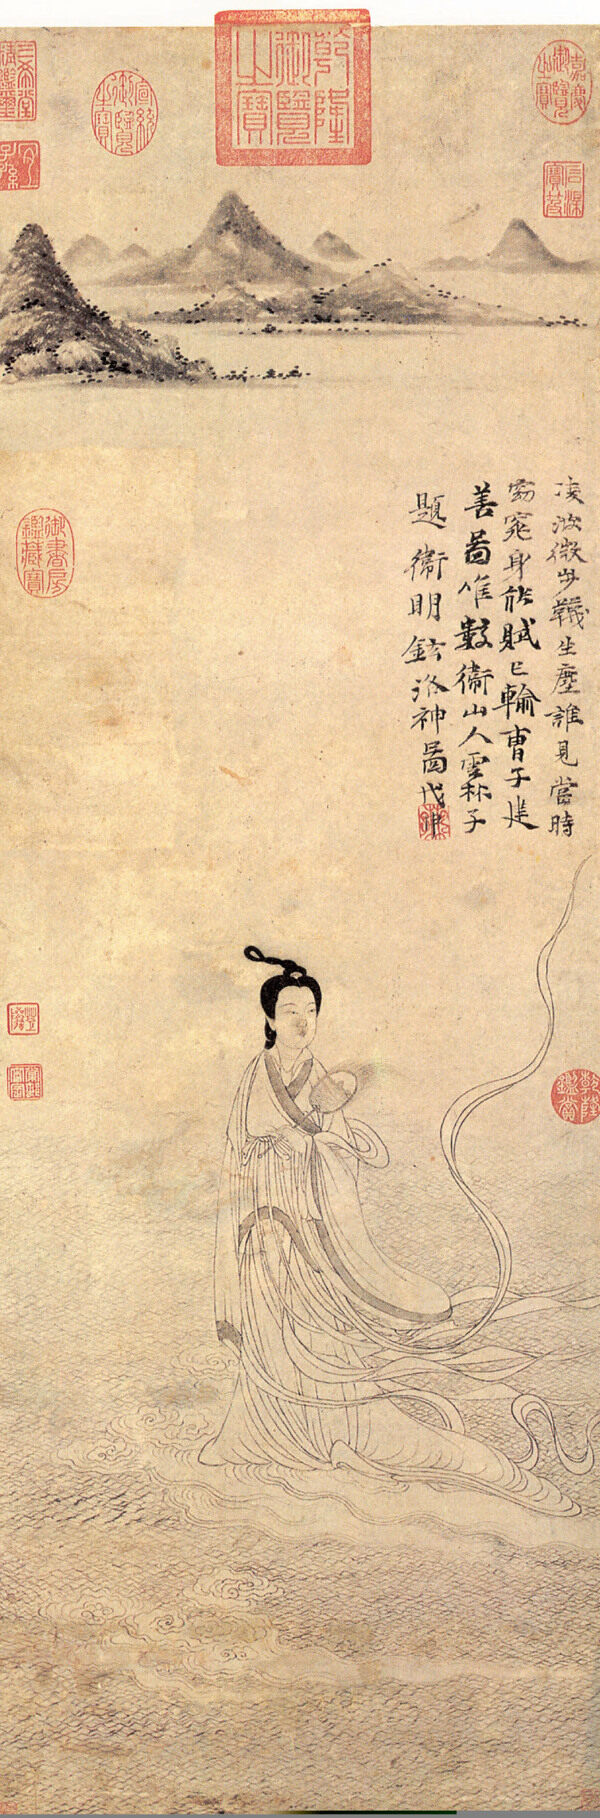 乾隆御覽之寶
嘉慶御覽之寶
石渠寶笈
宣統御覽之寶
三希堂精鑑璽
宜子孫
凌波微步韈生塵誰見當時
窈窕身能賦已輸曹子建
善啚唯數衛山人雲林子
題衛明鉉洛神啚戊申
御書房鑑藏寶
乾隆鑑賞